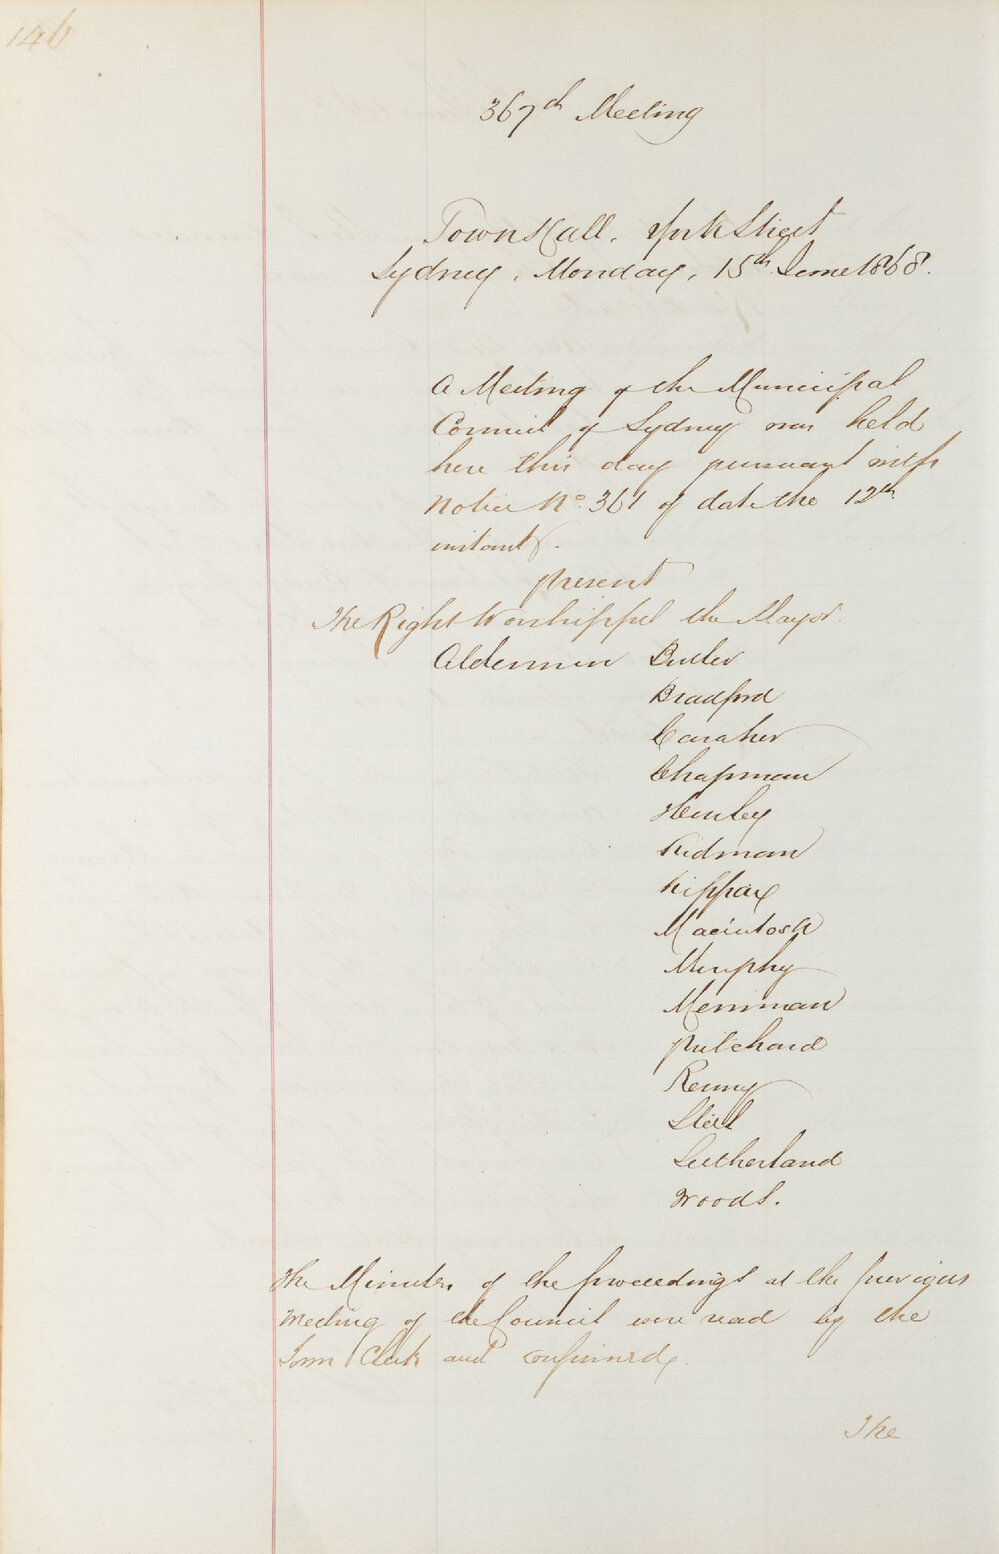 146
367th Meeting
Town Hall. York Street
Sydney, Monday, 15th June 1868.
A Meeting of the Municipal
Council of Sydney was held
here this day pursuant with
Notice No. 361 of date the 12th
instant.
present
The Right Worshippful the Mayor.
Aldermen Butler
Bradford
Caraher
Chapman
Henley
Kidman
Kippax
Macintosh
Murphy
Merriman
Pritchard
Renny
Steel
Sutherland
Woods.
The Minutes of the proceedings at the previous
Meeting of the Council were read by the
Town Clerk and confirmed.
The